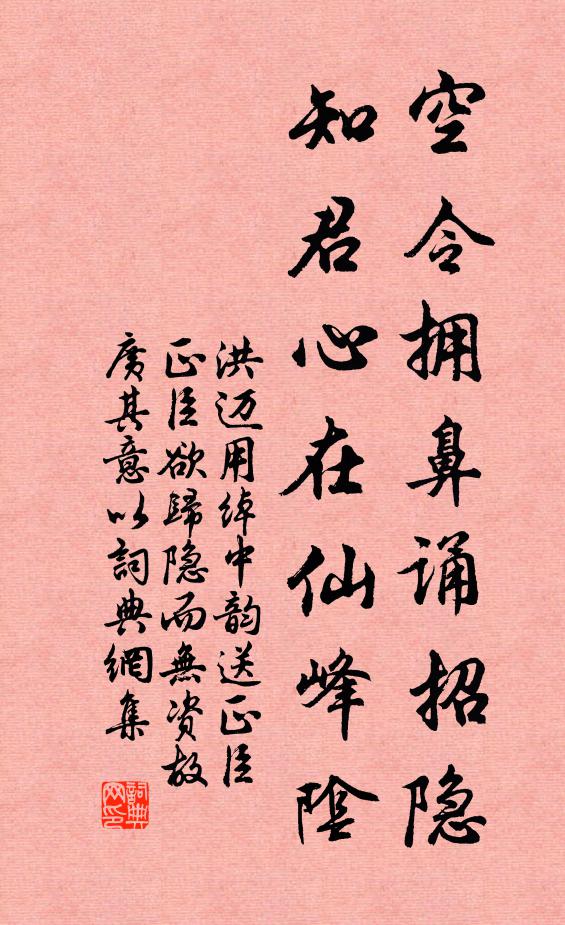 空令拥鼻诵招隐
知君心在仙峰阴
洪迈用绰中韵送正臣
正臣欲歸隐而無资故
廣其意以詞典網集
詞典网印